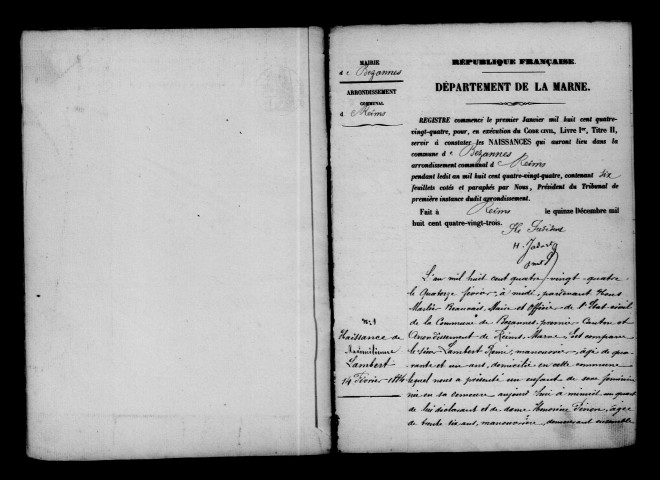 MAIRIE
de Bezannes
ARRONDISSEMENT
COMMUNAL
d Reims
RÉPUBLIQUE FRANÇAISE.
DÉPARTEMENT DE LA MARNE.
REGISTRE commencé le premier Janvier mil huit cent quatre-
vingt-quatre, pour, en exécution du CODE CIVIL, Livre Ier, Titre II,
servir à constater les NAISSANCES qui auront lieu dans la
commune de Bezannes
arrondissement communal de Reims
pendant ledit an mil huit cent quatre-vingt-quatre, contenant six
feuillets cotés et paraphés par Nous, Président du Tribunal de
première instance dudit arrondissement.
Fait à Reims le quinze Décembre mil
huit cent quatre-vingt-trois.
Le Président
N° 1
Naissance de
Maximilienne
Lambert
14 Février 1884
L'an mil huit cent quatre-vingt-quatre
le Quatorze février à midi, pardevant Nous
Beauvais, Maire et Officier de l'Etat-civil
de la Commune de Bezannes, premier Canton et
Arrondissement de Reims, Marne. Est comparu
le sieur Lambert Remi, manouvrier, âgé de qua-
rante et un ans, domicilié en cette commune
lequel nous a présenté un enfant de sexe féminin
née en sa demeure aujourd'hui à minuit un quart
de lui déclarant et de dame Honorine Pinon, âgée
de trente six ans, manouvrière, demeurant ensemble